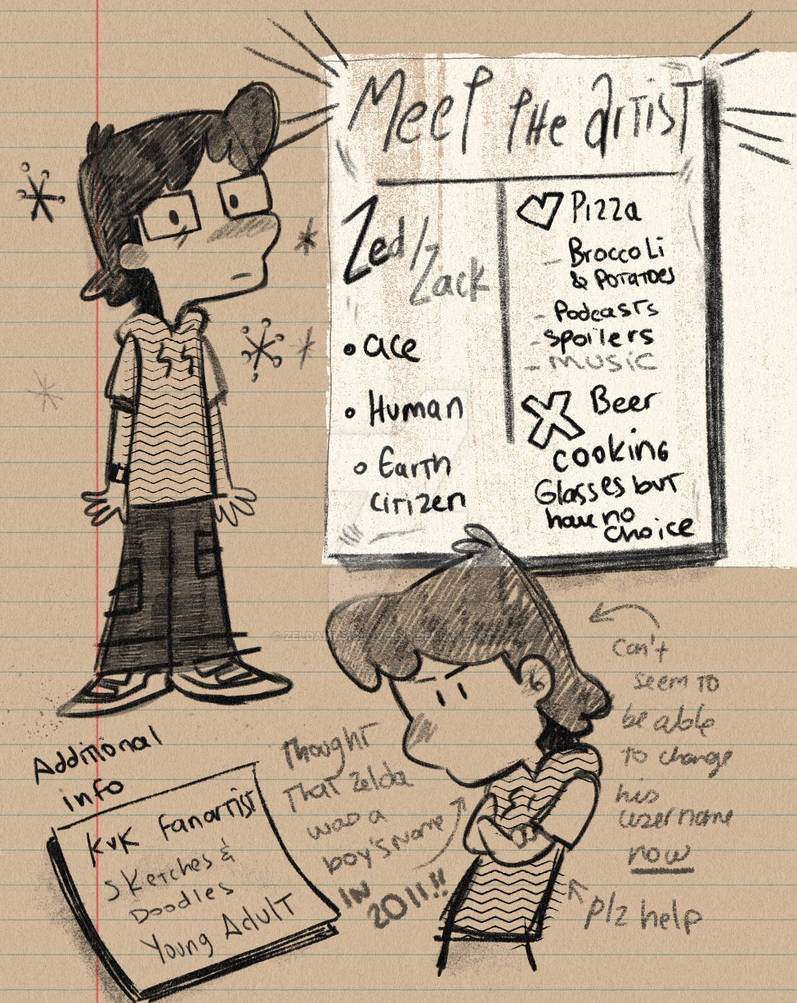 Meet the artist
Zed/
Zack
ace
Human
Earth
citizen
Pizza
- Broccoli
& Potatoes
- Podcasts
- spoilers
- music
X Beer
cooking
Glasses but
have no
choice
Additional
info
KvK fanartist
Sketches &
Doodles
Young Adult
Thought
That Zelda
was a
boy's name
IN
2011!!
Can't
seem to
be able
to change
his
username
now
plz help